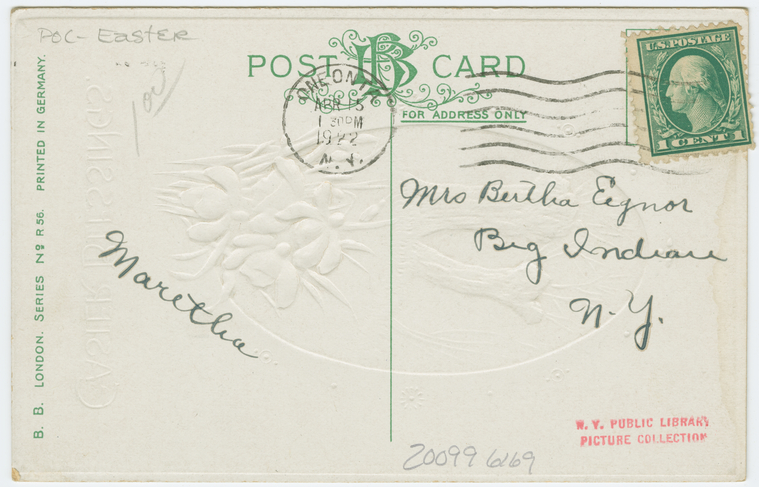 POC- EASTER
POST CARD
BB
FOR ADDRESS ONLY
ONEONTA
APR 15
1 30PM
1922
N.Y.
U.S. POSTAGE
1 CENT 1
Mrs Bertha Eignor
Big Indian
N.Y.
Maretha
B. B. LONDON. SERIES Nº R 56. PRINTED IN GERMANY.
EASTER BLESSINGS
N. Y. PUBLIC LIBRARY
PICTURE COLLECTION
20099 6169